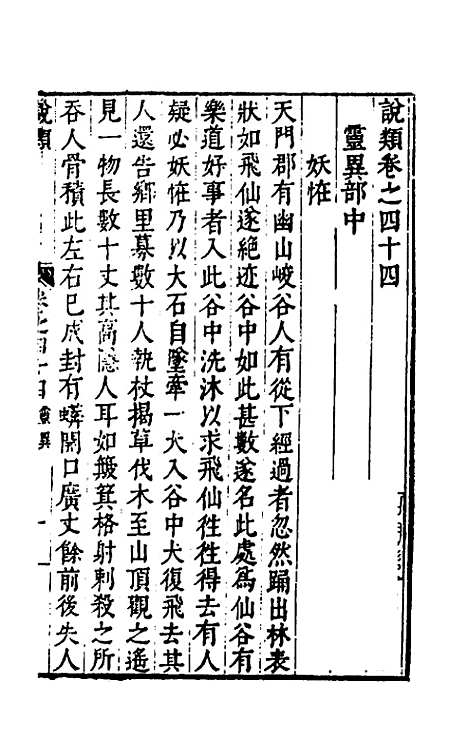 說類卷之四十四
靈異部中
妖恠
天門郡有幽山峻谷人有從下經過者忽然踊出林表
狀如飛仙遂絕迹谷中如此甚數遂名此處爲仙谷有
樂道好事者入此谷中洗沐以求飛仙徃徃得去有人
疑必妖恠乃以大石自墜牽一犬入谷中犬復飛去其
人還告鄉里募數十人執杖揭草伐木至山頂觀之遙
見一物長數十丈其高隱人耳如簸箕格射刺殺之所
吞人骨積此左右已成封有蟒開口廣丈餘前後失人
說類
卷之四十四 靈異
一